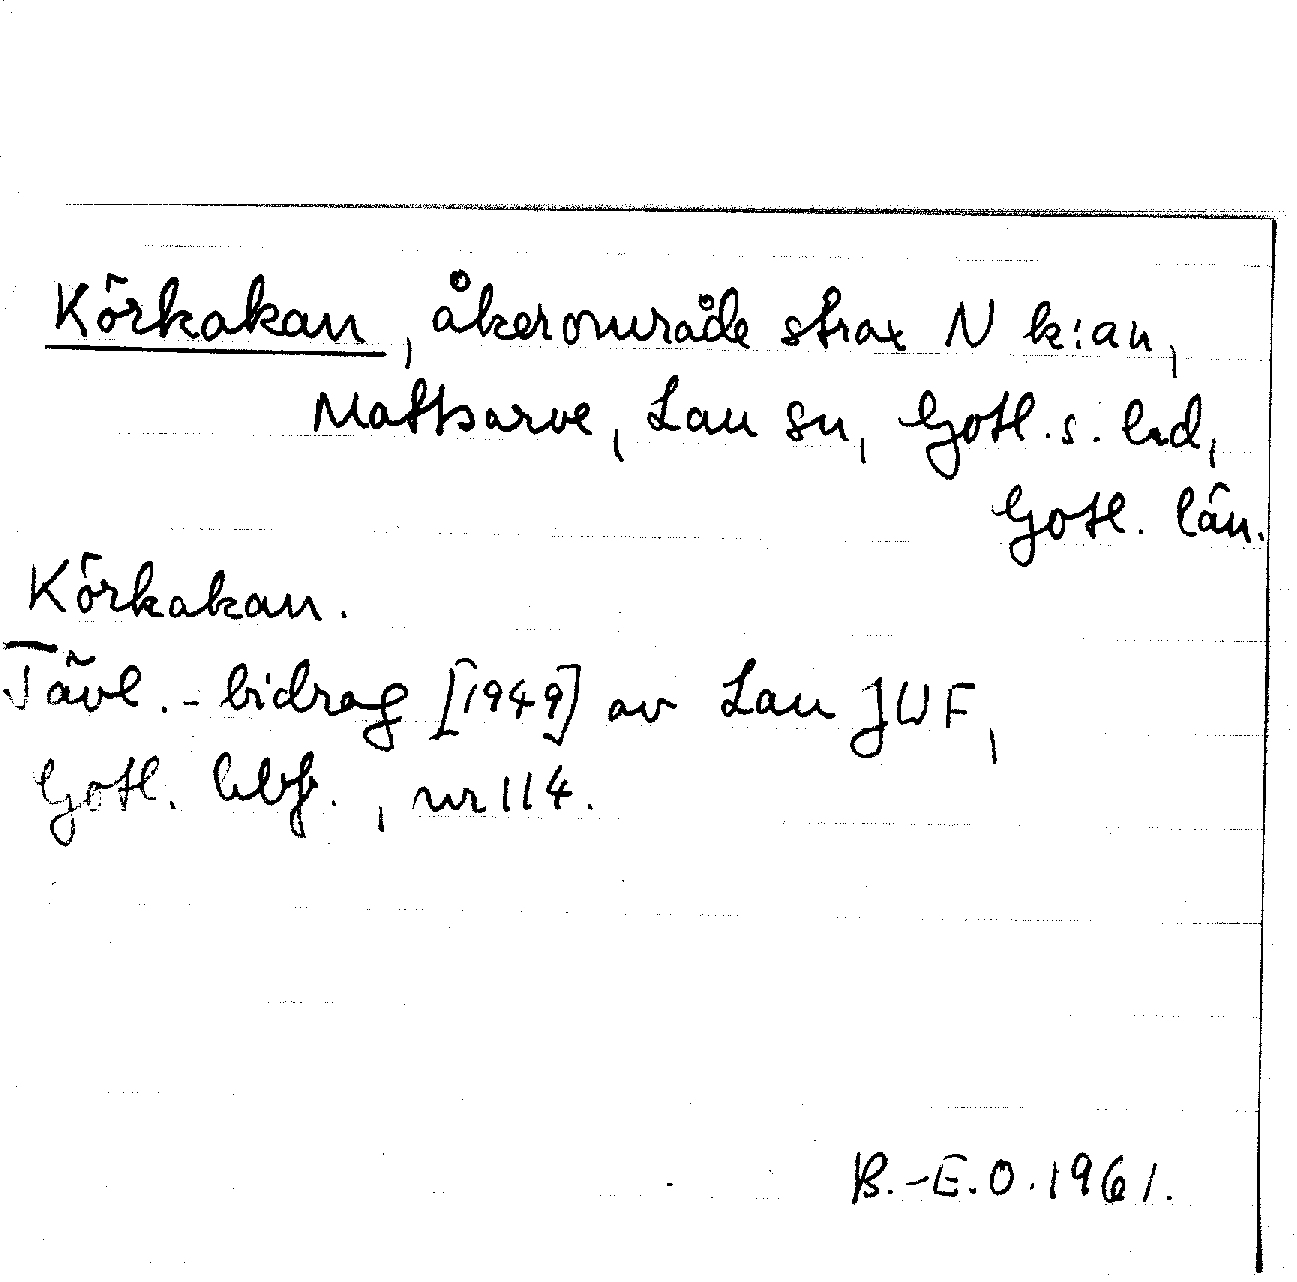 Körkakan, åkerområde strax N k:an,
Mattsarve, Lau sn, Gotl. s. hd,
Gotl. län.
Körkakan.
Tävl.-bidrag [1949] av Lau JUF,
Gotl. hbf., nr 114.
B.-E.O. 1961.